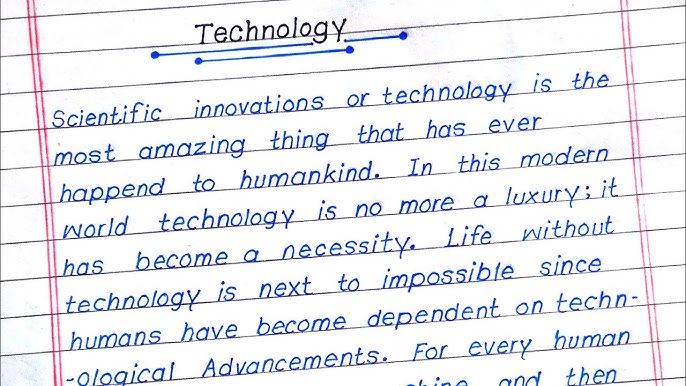 Technology
Scientific innovations or technology is the
most amazing thing that has ever
happend to humankind. In this modern
world technology is no more a luxury; it
has become a necessity. Life without
technology is next to impossible since
humans have become dependent on techn-
-ological Advancements. For every human
and then